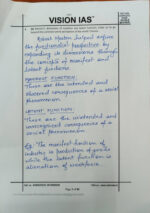 VISION IAS
Robert Merton helped refine
the functionalist perspective by
expanding its dimensions through
the concepts of manifest and
latent functions.
MANIFEST FUNCTION:
These are the intended and
observed consequences of a social
phenomenon
LATENT FUNCTION:
These are the unintended and
unrecognised consequences of a
social phenomenon
Eg: The manifest function of
industry is production of goods
while the latent function is
alienation of workforce.